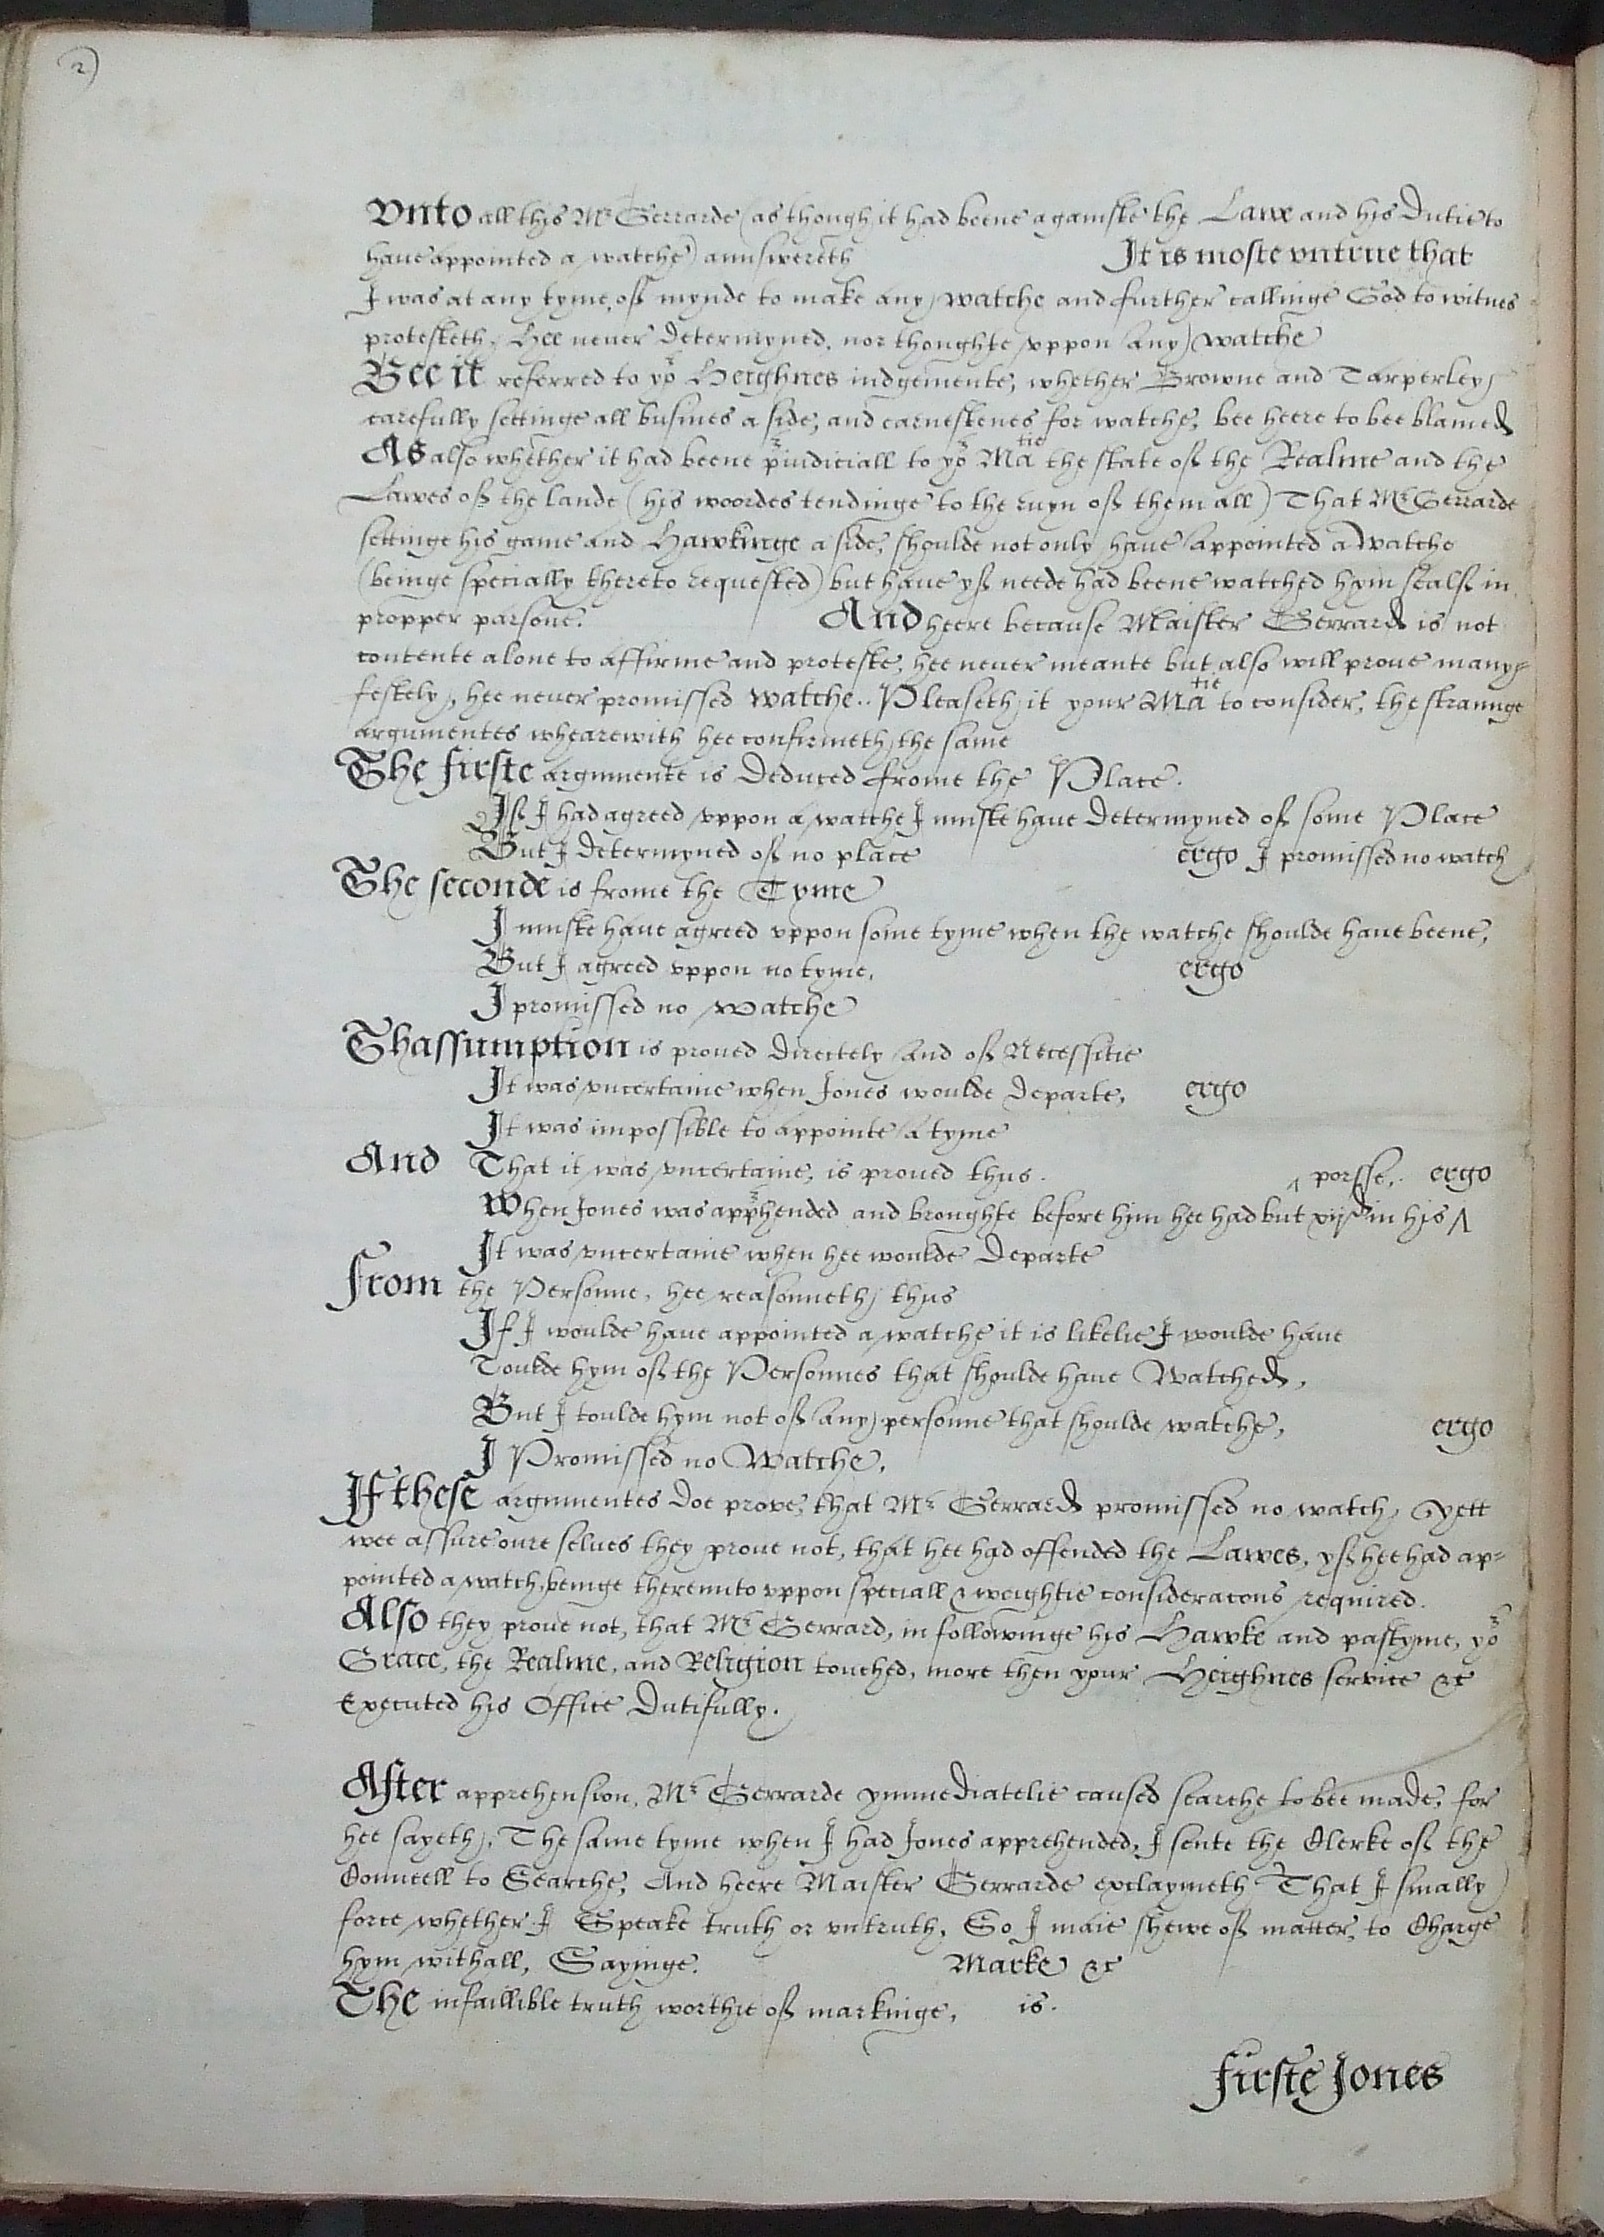 2)
Vnto all this Mr Gerrarde (as though it had beene againste the Lawe and his dutie to
haue appointed a watche) aunswereth It is moste vntrue that
I was at any tyme, off mynde to make any watche and further callinge God to witnes
protesteth, Hee neuer determyned, nor thoughte vppon any watche
Bee it referred to yor Heighnes iudgemente, whether Browne and Tarperley
carefully settinge all busines a side, and earnestenes for watche, bee heere to bee blamed
As also whether it had beene priudiciall to yor Matie the state off the Realme and the
Lawes off the lande (his woordes tendinge to the ruyn off them all) That Mr Gerrarde
settinge his game and Hawkinge a side, shoulde not only haue appointed a watche
(beinge specially thereto requested) but haue yff neede had beene watched hym sealff in
propper parsone. And heere because Maister Gerrard is not
contente alone to affirme and proteste, hee neuer meante but also will proue many=
festely, hee neuer promissed watche.. Pleaseth it your Matie to consider, the straunge
argumentes whearewith hee confirmeth the same
The firste argumente is deduced frome the Place.
Iff I had agreed vppon a watche I muste haue determyned off some Place
But I determyned off no place ergo I promissed no watch
The seconde is frome the Tyme
I muste haue agreed vppon some tyme when the watche shoulde haue beene,
But I agreed vppon no tyme, ergo
I promissed no watche
Thassumption is proued directely and off Necessitie
It was vncertaine when Jones woulde departe, ergo
It was impossible to appointe a tyme
And That it was vncertaine, is proued thus. ^ porsse,. ergo
When Jones was apprhended and broughte before him hee had but xijd in his ^
It was vncertaine when hee woulde departe
From the Personne, hee reasonneth thus
If I woulde haue appointed a watche it is likelie I woulde haue
Toulde hym off the Personnes that shoulde haue Watched,
But I toulde hym not off any personne that shoulde watche, ergo
I Promissed no Watche.
If these argumentes doe prove, that Mr Gerrard promissed no watch, yett
wee assure oure selues they proue not, that hee had offended the Lawes, yff hee had ap=
pointed a watch, beinge therevnto vppon speciall & weightie consideracons required.
Also they proue not, that Mr Gerrard, in followinge his Hawke and pastyme, yor
Grace, the Realme, and Religion touched, more then your Heighnes service &c
Executed his Office dutifully.
After apprehension, Mr Gerrarde ymmediatelie caused searche to bee made, for
hee sayeth, The same tyme when I had Jones apprehended, I sente the Clerke off the
Councell to Searche, And heere Maister Gerrarde exclaymeth That I smally
force whether I Speake truth or vntruth, So I maie shewe off matter, to Charge
hym withall, Sayinge. Marke &c
The infallible truth worthie off markinge, is.
Firste Jones